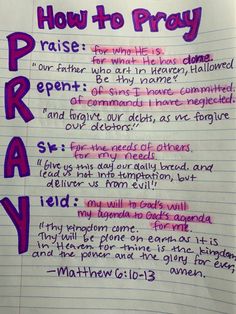 How to Pray
Praise: for who HE is.
for what He has done.
"Our father who art in Heaven, Hallowed
Be thy name"
Repent: of sins I have committed.
of commands I have neglected.
"and forgive our debts, as we forgive
our debtors."
Ask: for the needs of others.
for my needs.
"Give us this day our daily bread. and
lead us not into temptation, but
deliver us from evil"
Yield: my will to God's will
my agenda to God's agenda
for me.
"Thy kingdom come.
Thy will be done on earth as it is
in Heaven for thine is the kingdom
and the power and the glory for ever,
amen.
—Matthew 6:10-13